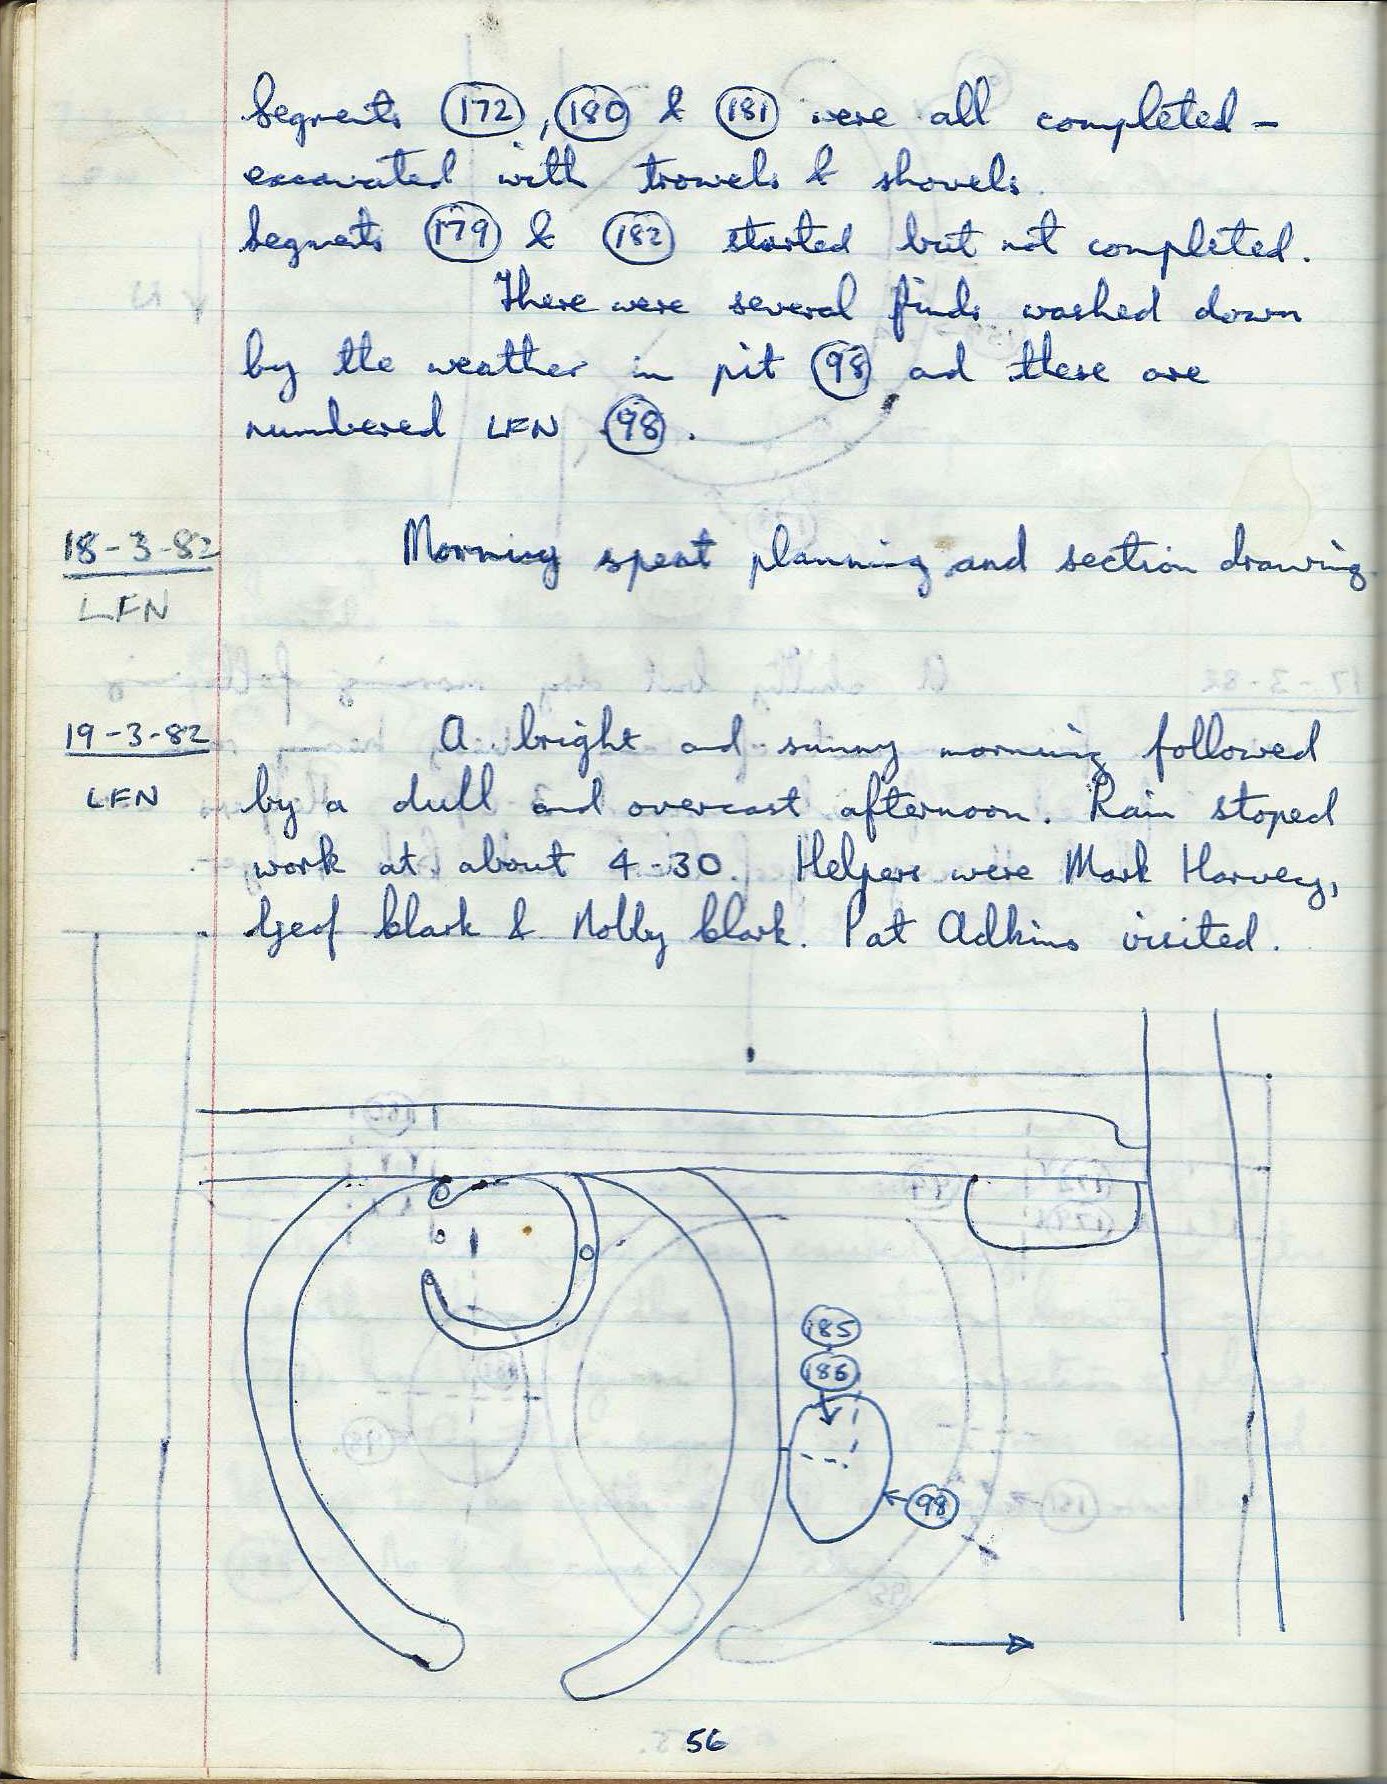 Segments 172, 180 & 181 were all completed -
excavated with trowels & shovels.
Segments 179 & 182 started but not completed.
There were several finds washed down
by the weather in pit 98 and these are
numbered LFN 98.
18-3-82 Morning spent planning and section drawing.
LFN
19-3-82 A bright and sunny morning followed
LFN by a dull and overcast afternoon. Rain stoped
work at about 4-30. Helpers were Mark Harvey,
Geof Clark & Nobby Clark. Pat Adkins visited.
185
186
98
56